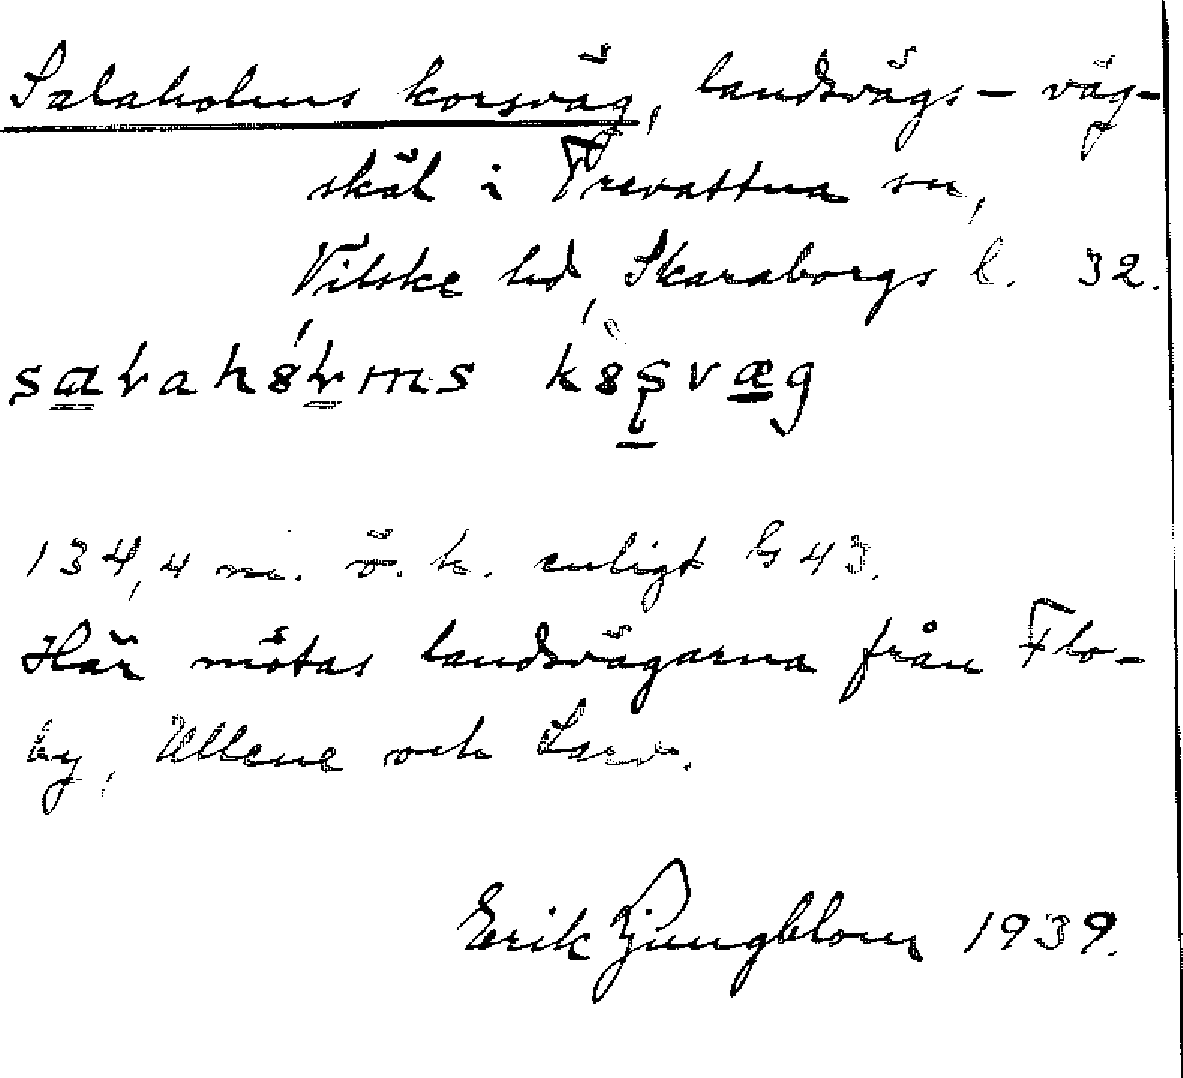 Salaholms korsväg, landsvägs- väg-
skäl i Trevattna sn,
Vilske hd, Skaraborgs l. 32.
134,4 m. ö. h. enligt G 43.
Här mötas landsvägarna från Flo-
by, Ullene och Larv.
Erik Ljungblom 1939.